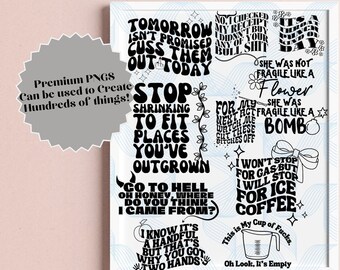 Premium PNGS
Can be used to Create
Hundreds of things!
TOMORROW
ISN'T PROMISED
CUSS THEM
OUT TODAY
STOP
SHRINKING
TO FIT
PLACES
YOU'VE
OUTGROWN
SHE WAS NOT
FRAGILE LIKE A
Flower
SHE WAS
FRAGILE LIKE A
BOMB
FOR MY
GO TO HELL
OH HONEY, WHERE
DO YOU THINK
I CAME FROM?
I WON'T STOP
FOR GAS BUT I
WILL STOP
FOR ICE
COFFEE
I KNOW IT'S A
HANDFUL
BUT THAT'S
WHY YOU GOT
TWO HANDS
This is My Cup of Fucks.
Oh Look, It's Empty